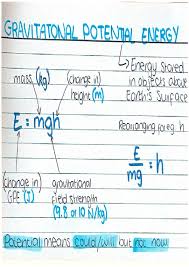 GRAVITATONAL POTENTIAL ENERGY
Energy stored
in objects above
Earth's Surface
mass (kg)
(change in)
height (m)
Rearranging for eg. h
E = mgh
E/mg = h
(change in)
GPE (J)
gravitational
field strength
(9.8 or 10 N/kg)
Potential means could/will but not now